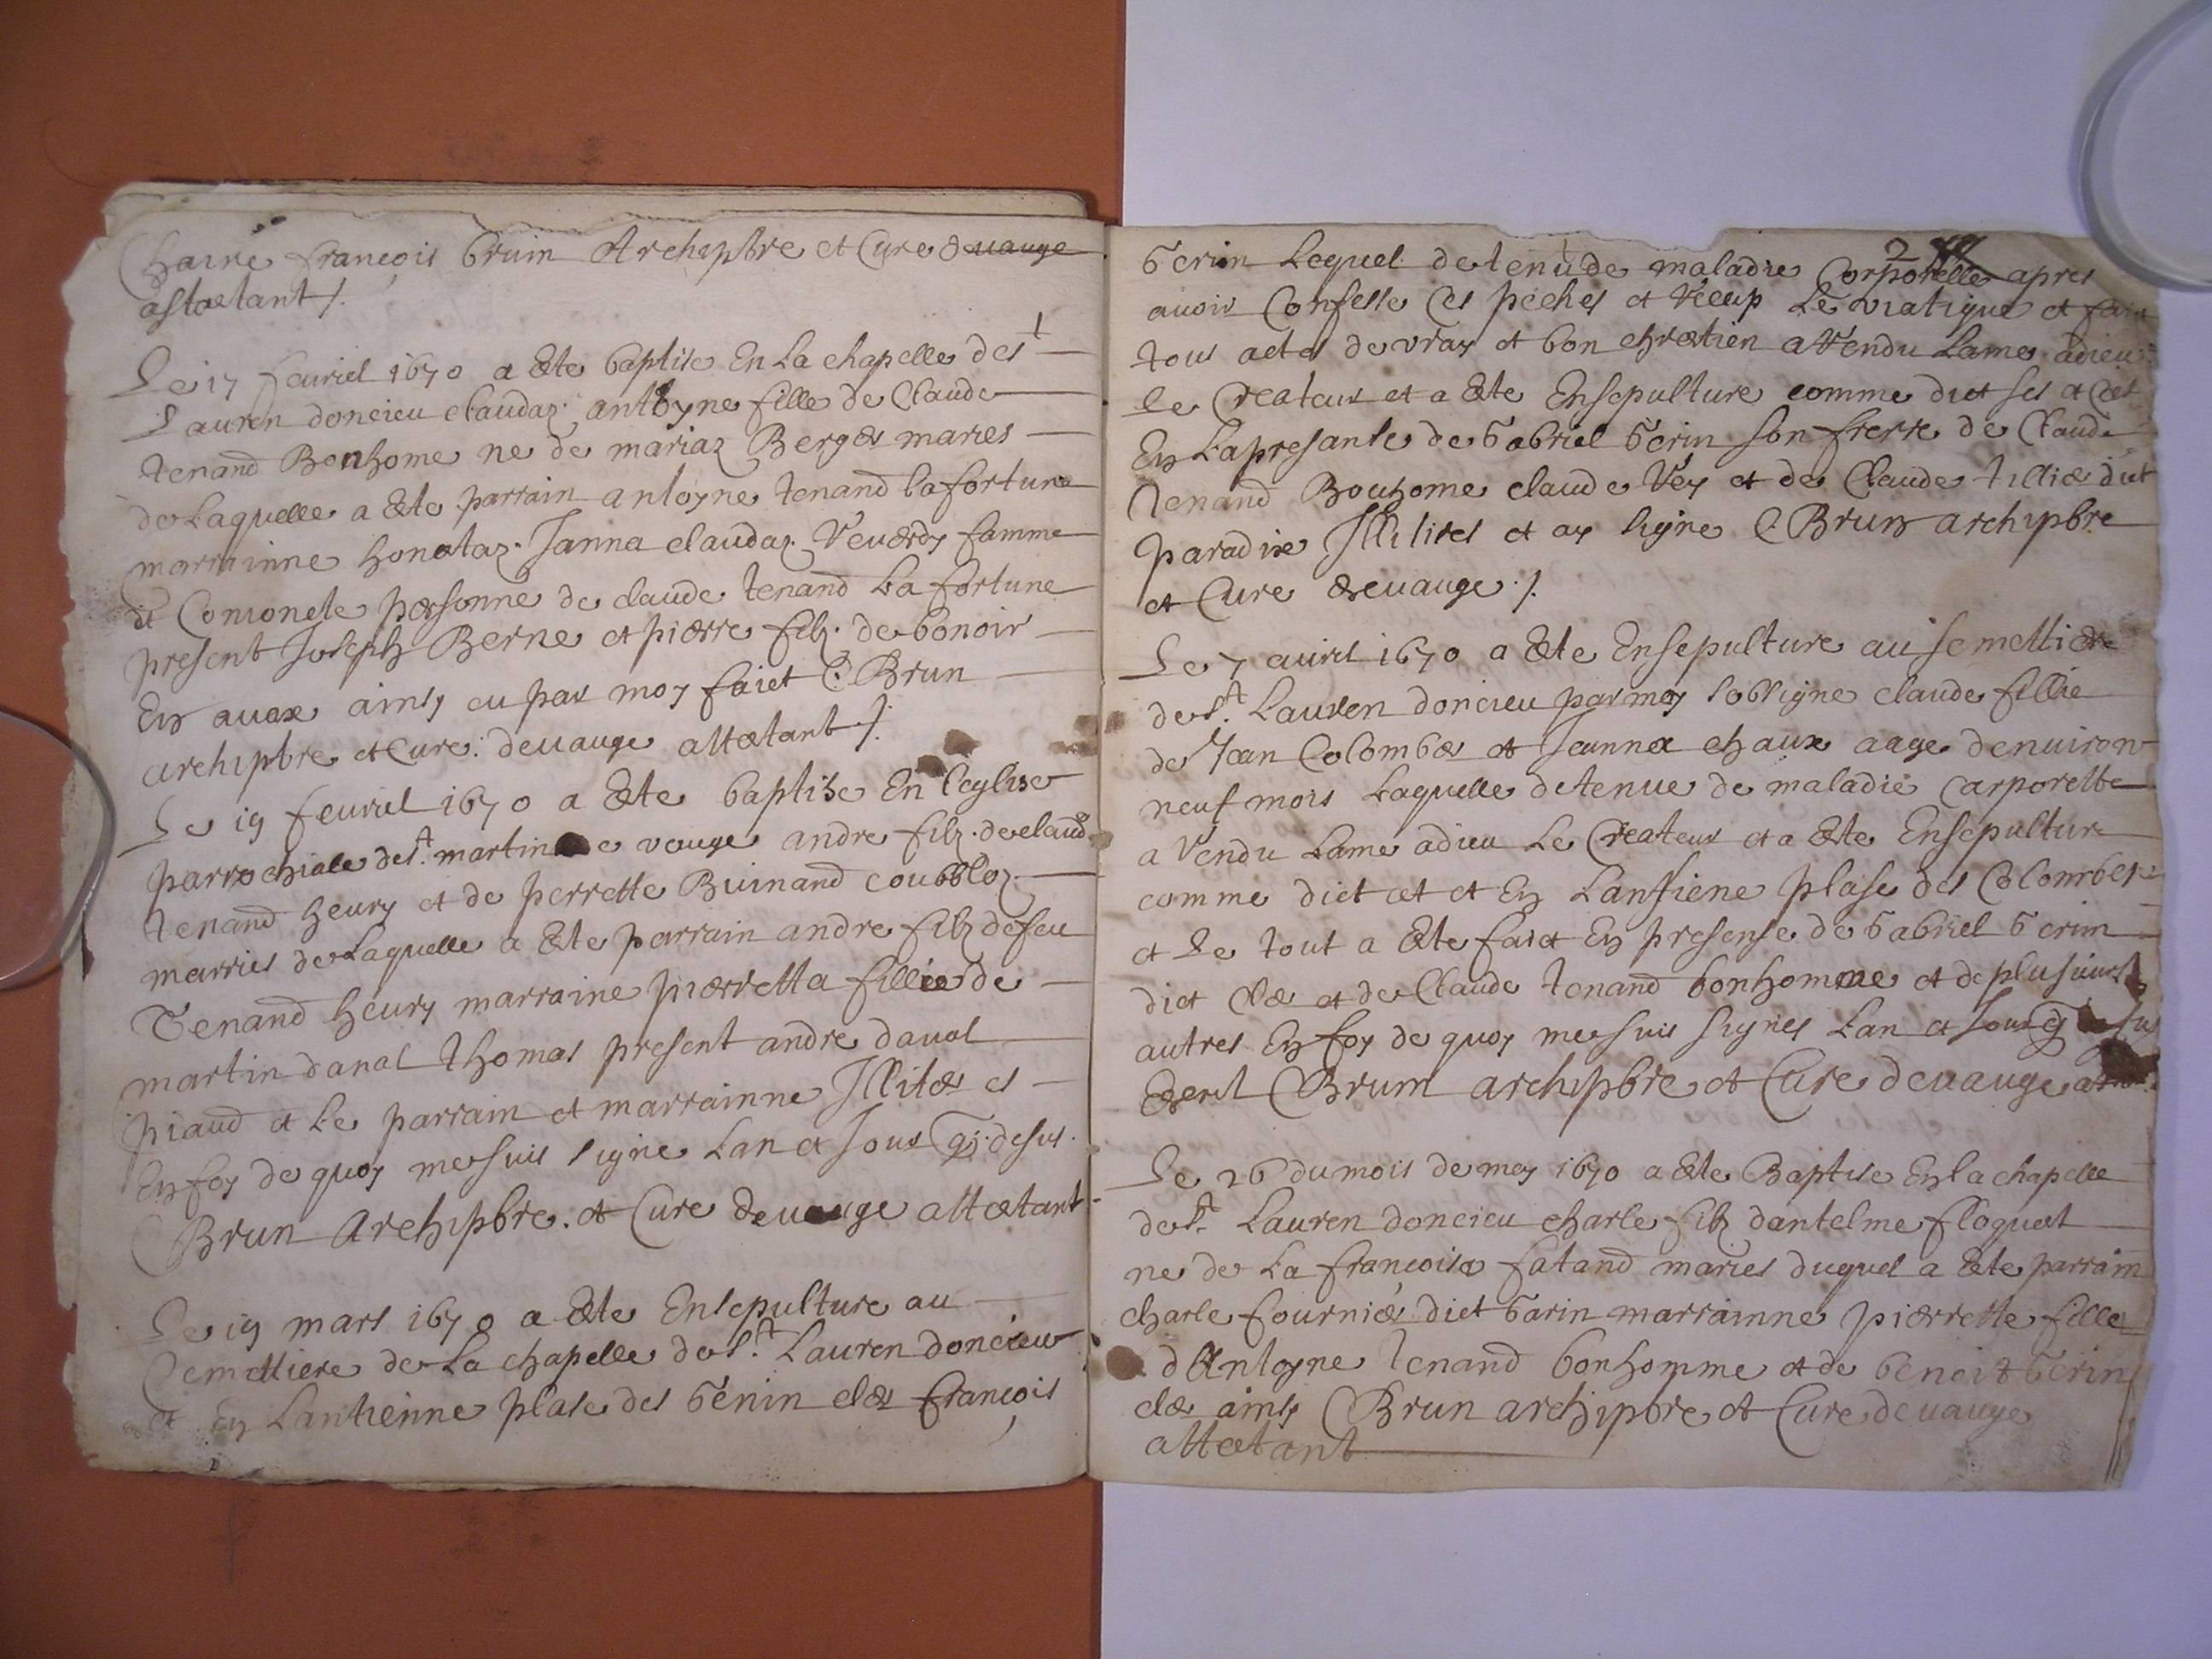 Chaire françois brun Archipbre et Cure devauge
astaetant /.
Le 17 feuriel 1670 a Este baptise En La chapelle de st
Lauren doncieu claudaz antoyne fille de Claude
tenand Bonhome ne de mariaz Berges maries
de Laquelle a Este parrain antoyne tenand lafortune
marrainne honetaz Janna claudaz Veuerdy famme
persone de claude tenand La fortune
present Joseph Berne et pierre filz de bonoir
En auaxe ainsy cu par moy faict C. Brun
archipbre et Cure devauge attaetant /.
Le 19 feuriel 1670 a Este baptise En l'eglise
parrochiale de st martin de vauge andre filz de claude
tenand heury et de perrette Buinand coubbloz
marries de Laquelle a Este parrain andre filz de feu
Tenand heury marraine pierretta fillie de
martin danal thomas present andre daval
piaud et Le parrain et marrainne Illites et
En foy de quoy me suis signe Lan et Jour qj. desus
Brun Archipbre et Cure devauge attaetant
Le 19 mars 1670 a Este Ensepulture au
Cemettiere de La chapelle de st Lauren doncieu
et En Lantienne plase des Genin françois
2
Gerin Lequel detenu de maladie Corporelle apres
auoir Confesse Ces peches et Receup Le viatique et faict
tous actes de vray et bon chretien a Rendu Lame adieu
Le Createur et a Este Ensepulture comme dict ses et Cest
En La presante de Gabriel Gerin son frerre de Claude
Tenand Bonhome claude Rey et de Claude tillie dict
paradixe Illilites et ay signe C Brun archipbre
et Cure devauge /.
Le 7 auril 1670 a Este Ensepulture au semettiere
de st Lauren doncieu par moy sobsigne claude fillie
de Jean Colombe et Jeanna chaux aage denuiron
neuf mois Laquelle detenue de maladie Carporelle
a Rendu Lame adieu Le Createur et a Este Ensepulture
comme dict et et En Lansiene plase des Colombes
et Le tout a Este faict En presense de Gabriel Gerin
dict Cle et de Claude tenand bonhomme et de plusieurs
autres En foy de quoy me suis signes Lan et Jour qj desus
Eserit Brum archipbre et Cure devauge
Le 26 du mois de may 1670 a Este Baptise En la chapelle
de st Lauren doncieu charle filz dantelme floquet
ne de La francoise fatand maries duquel a Este parrain
charle fournier dict Garin marrainne pierrette fille
d'Antoyne tenand bonhomme et de benoite Gerin
cle ainsy Brun archipbre et Cure devauge
attaetant